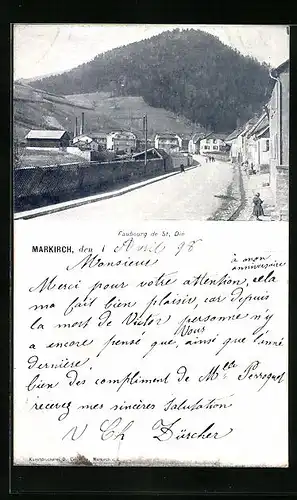 Faubourg de St. Dié
MARKIRCH, den 1 Avril 98
Monsieur
à mon
anniversaire
Merci pour votre attention, cela
ma fait bien plaisir, car depuis
la mort de Victor personne n'y
Vous
a encore pensé que, ainsi que l'année
dernière.
bien des compliment de Mlle Perroquet
recevez mes sincères Salutation
Ch Düscher
Markirch